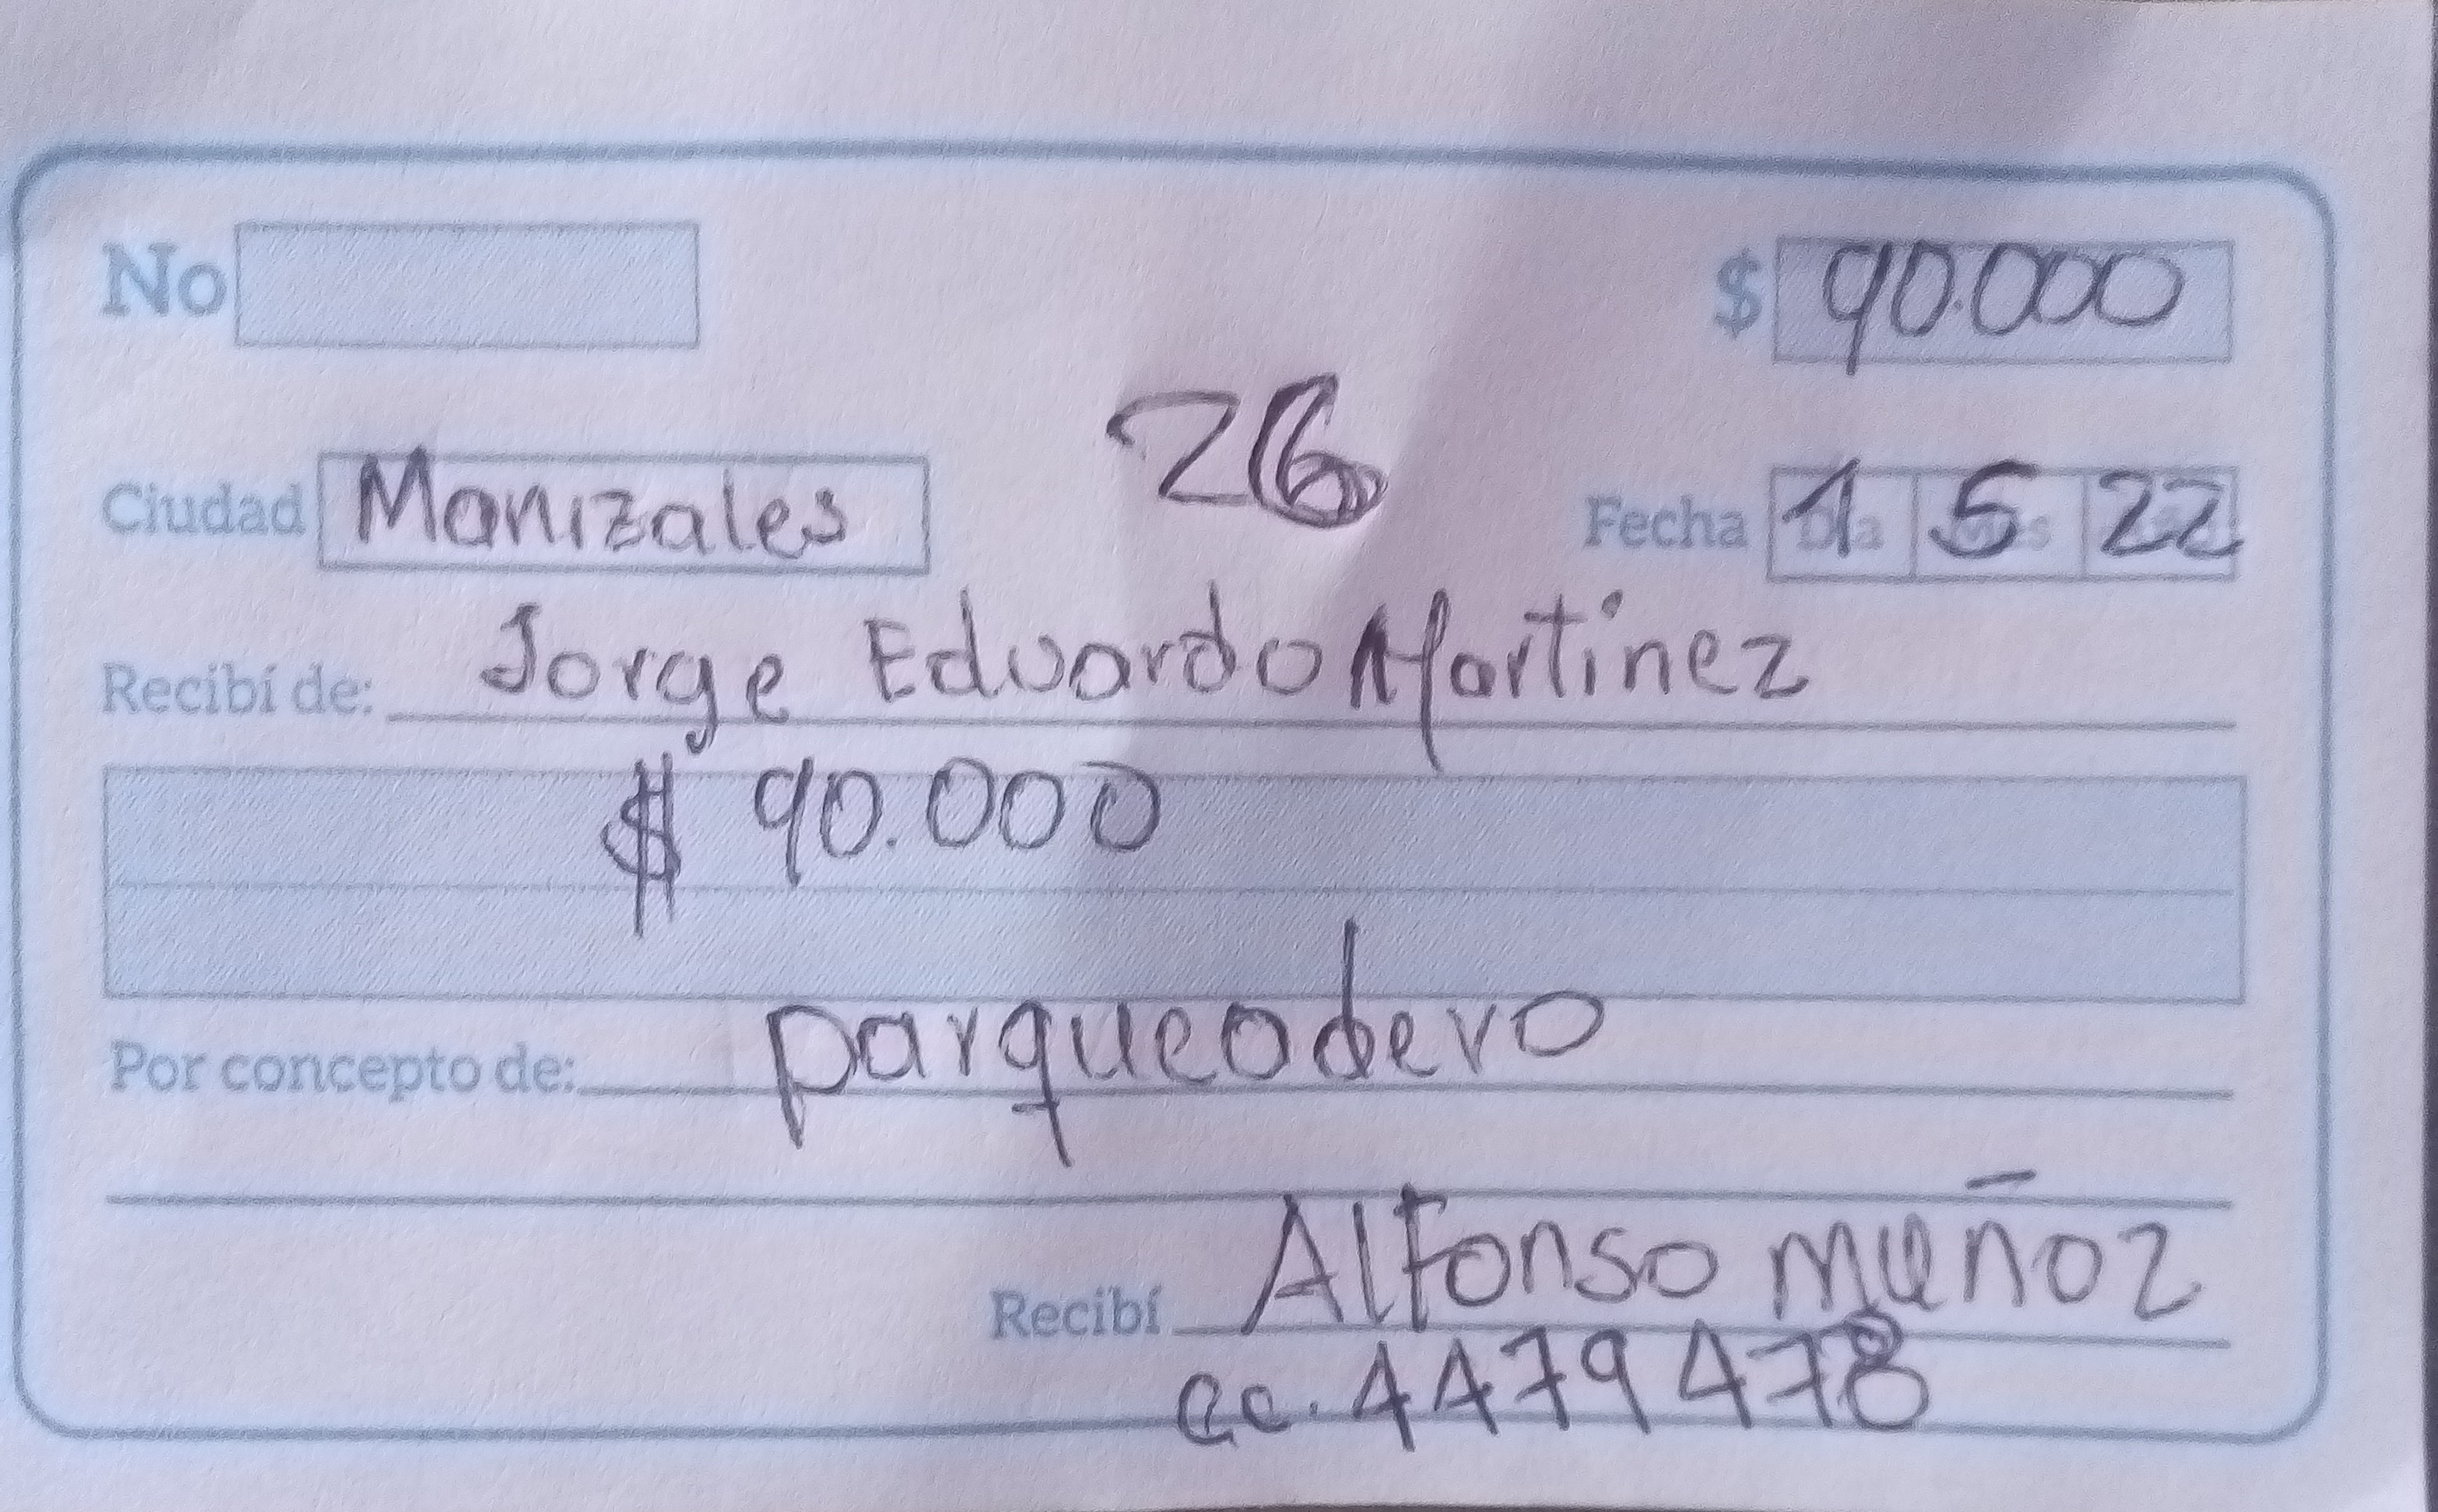 No $ 90.000
26
Ciudad Manizales Fecha 1 5 22
Recibí de: Jorge Eduardo Martinez
$ 90.000
Por concepto de: parqueadero
Recibí Alfonso muñoz
cc. 4479478